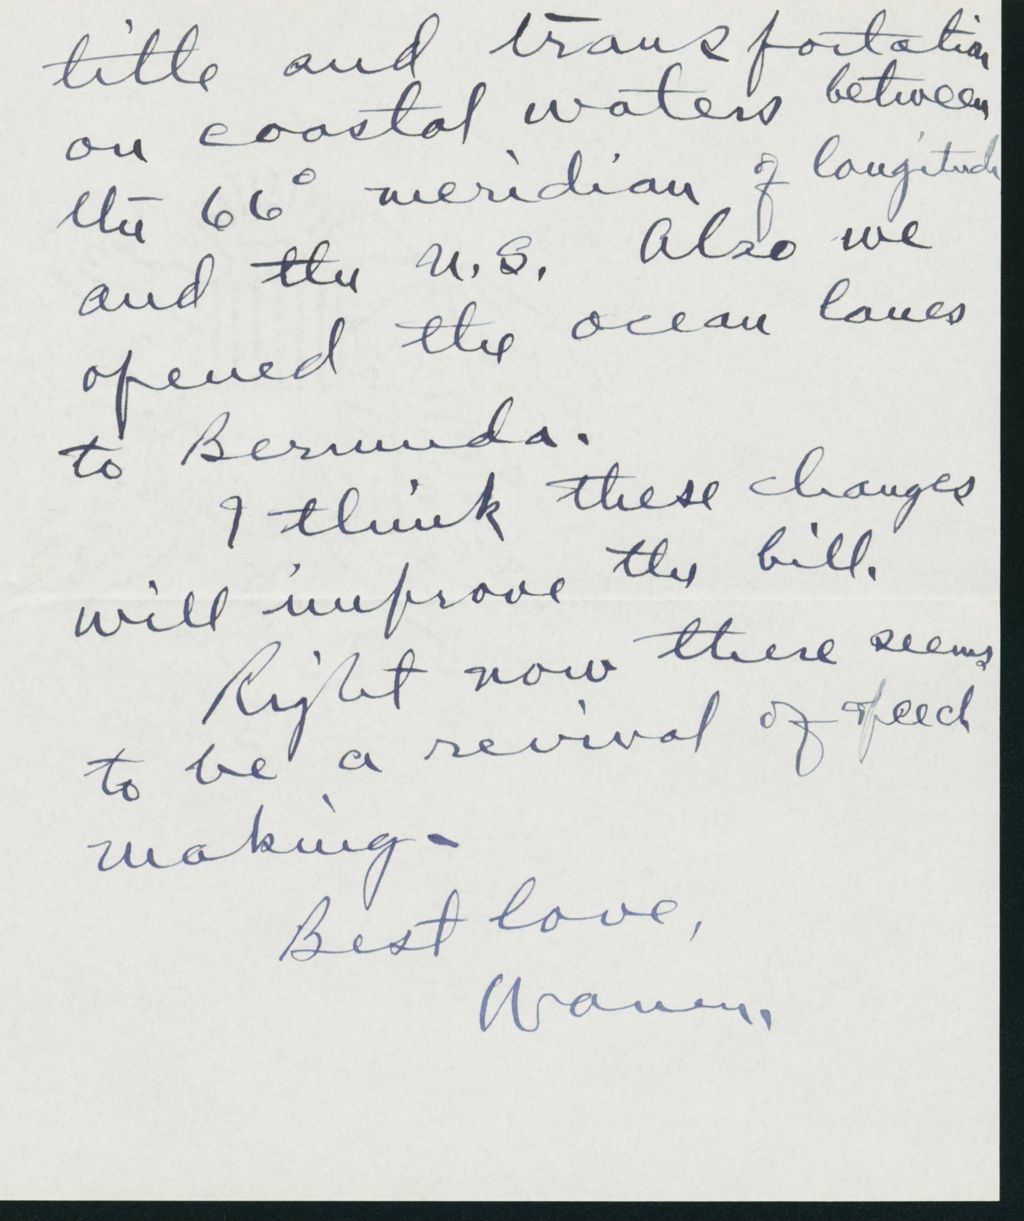 title and transportation
on coastal waters between
the 66° meridian of longitude
and the U.S. Also we
opened the ocean lanes
to Bermuda.
I think these changes
will improve the bill.
Right now there seems
to be a revival of speech
making.
Best love,
Warren.